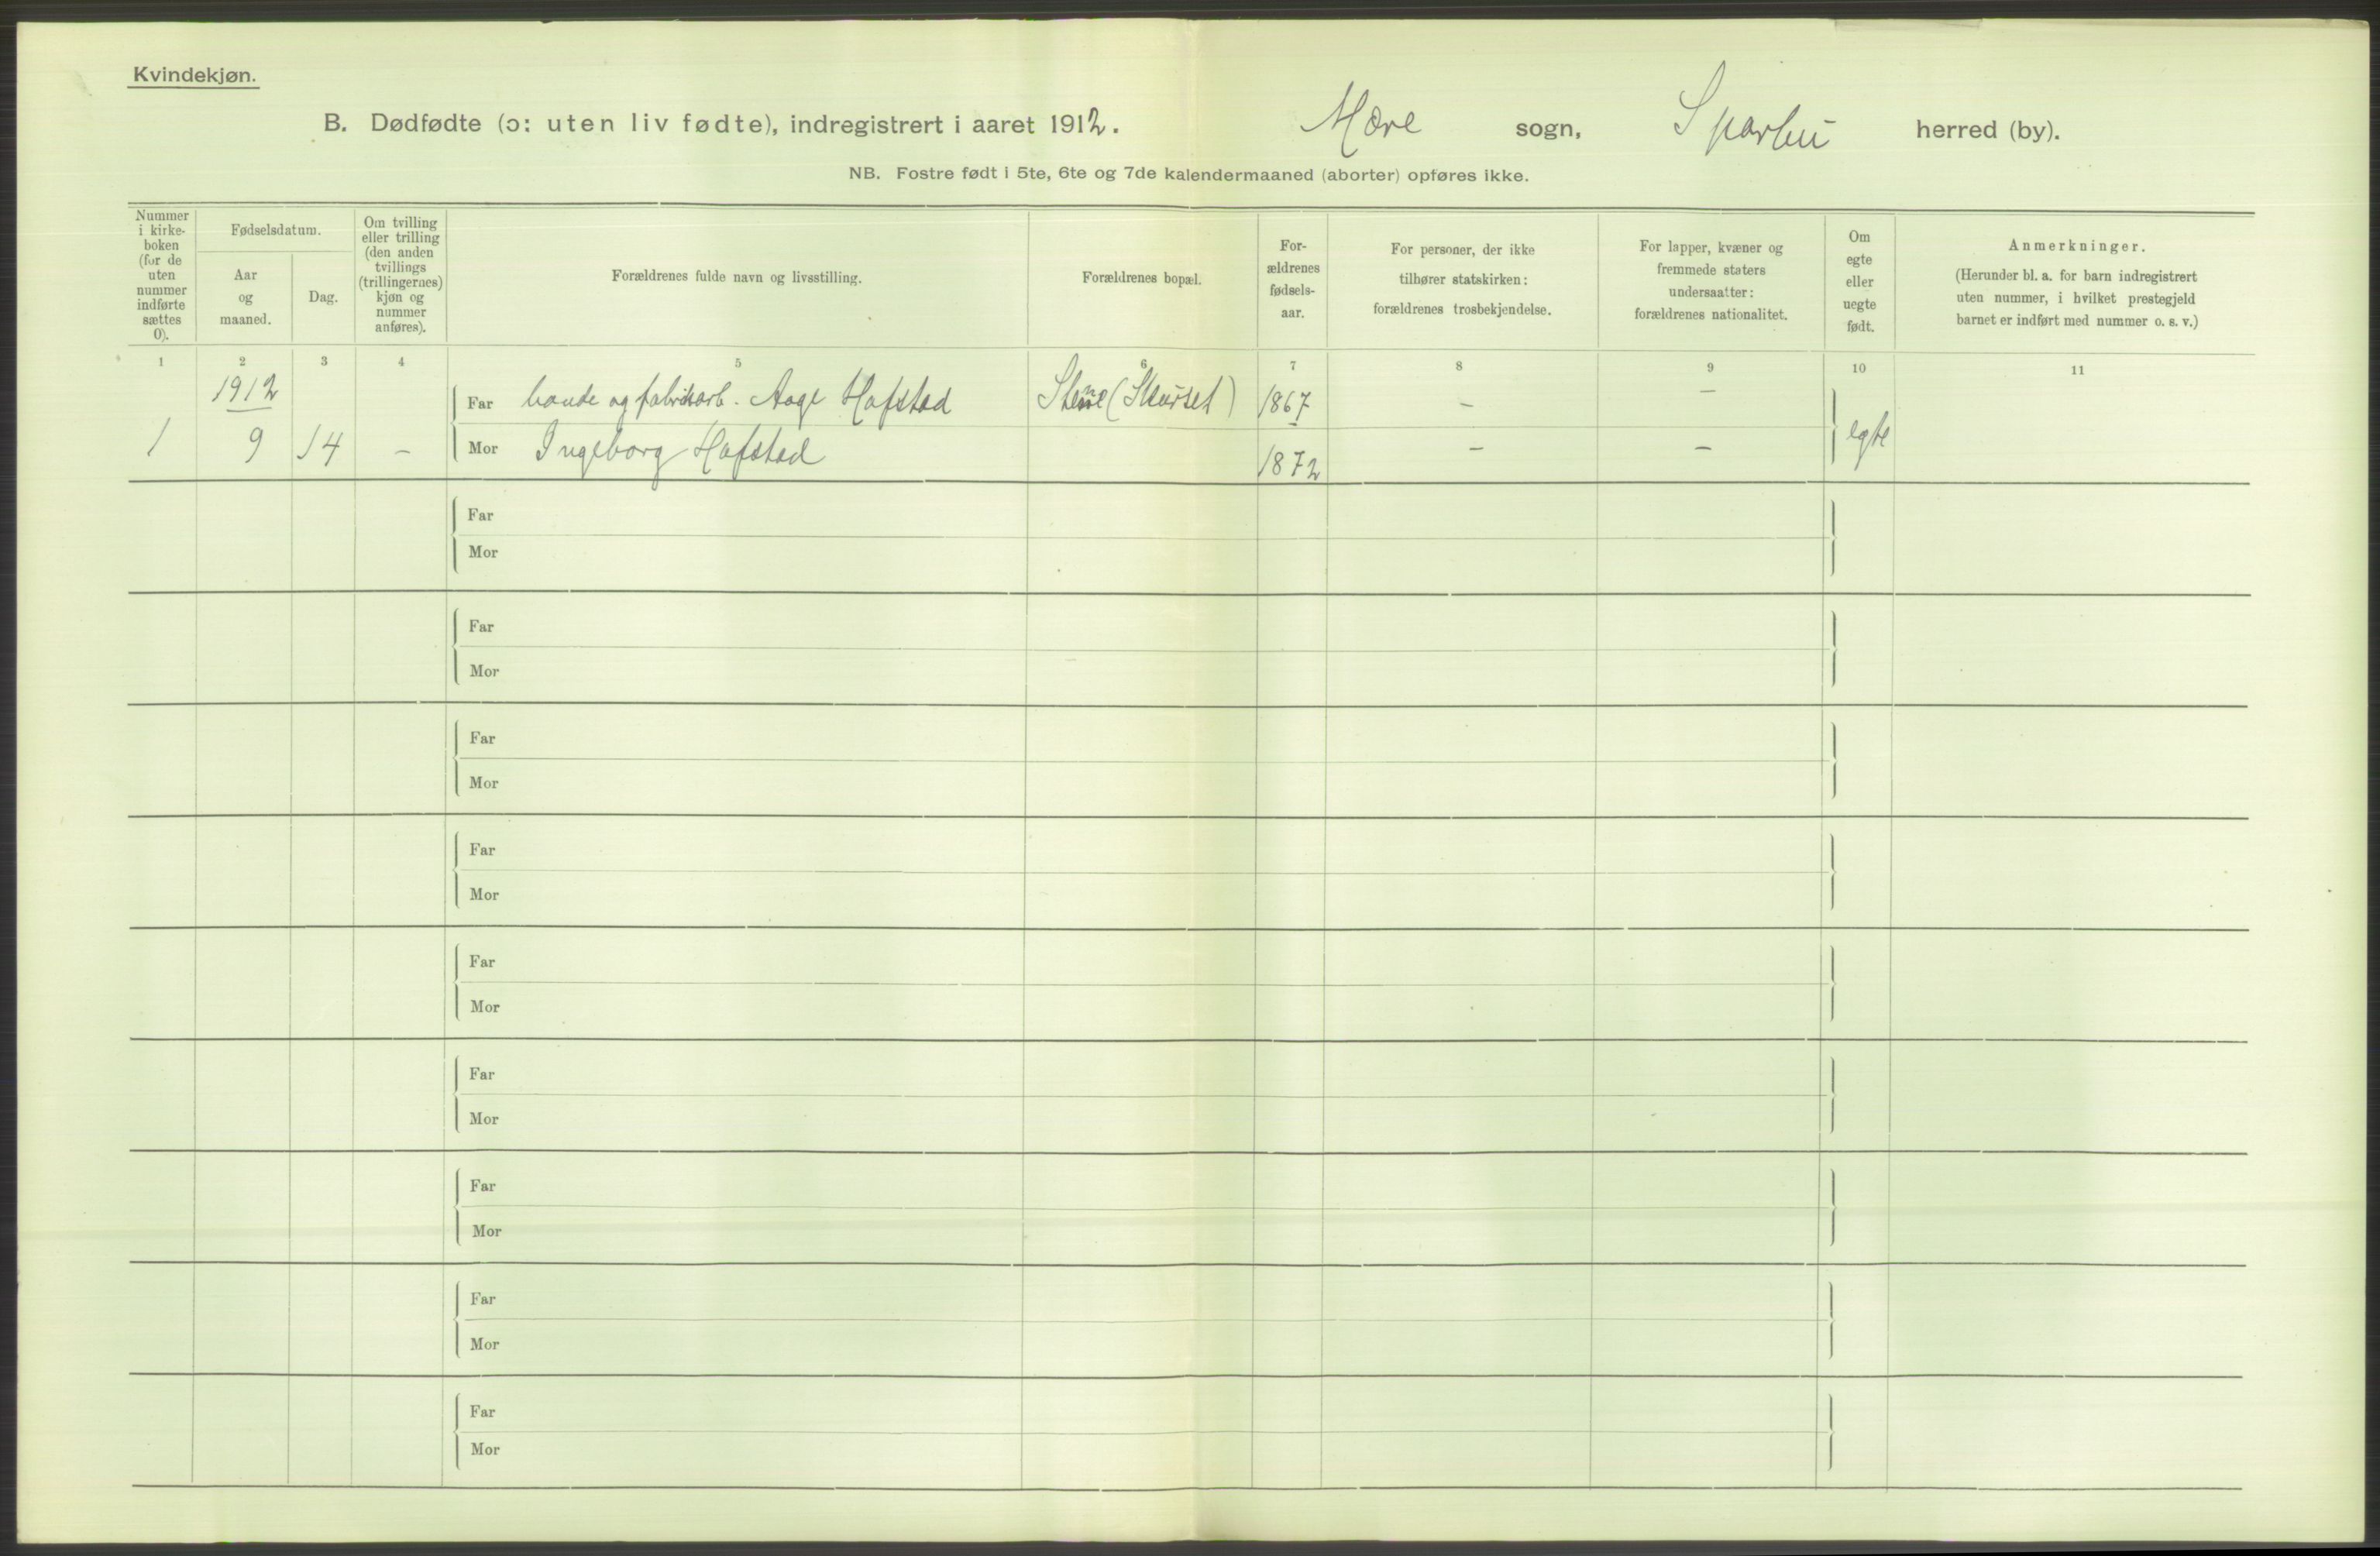 Kvindekjøn.
B. Dødfødte (ɔ: uten liv fødte), indregistrert i aaret 1912. Mære sogn, Sparbu herred (by).
NB. Fostre født i 5te, 6te og 7de kalendermaaned (aborter) opføres ikke.
Nummer
i kirke-
boken
(for de
uten
nummer
indførte
sættes
0).
Fødselsdatum.
Aar
og
maaned.
Dag.
Om tvilling
eller trilling
(den anden
tvillings
(trillingernes)
kjøn og
nummer
anføres).
Forældrenes fulde navn og livsstilling.
Forældrenes bopæl.
For-
ældrenes
fødsels-
aar.
For personer, der ikke
tilhører statskirken:
forældrenes trosbekjendelse.
For lapper, kvæner og
fremmede staters
undersaatter:
forældrenes nationalitet.
Om
egte
eller
uegte
født.
Anmerkninger.
(Herunder bl. a. for barn indregistrert
uten nummer, i hvilket prestegjeld
barnet er indført med nummer o. s. v.)
1 2 3 4 5 6 7 8 9 10 11
1912
Far bonde og fabrikarb. Aage Hafstad Stene (Skurset) 1867 - -
1 9 14 - Mor Ingeborg Hafstad 1872 - - egte
Far
Mor
Far
Mor
Far
Mor
Far
Mor
Far
Mor
Far
Mor
Far
Mor
Far
Mor
Far
Mor